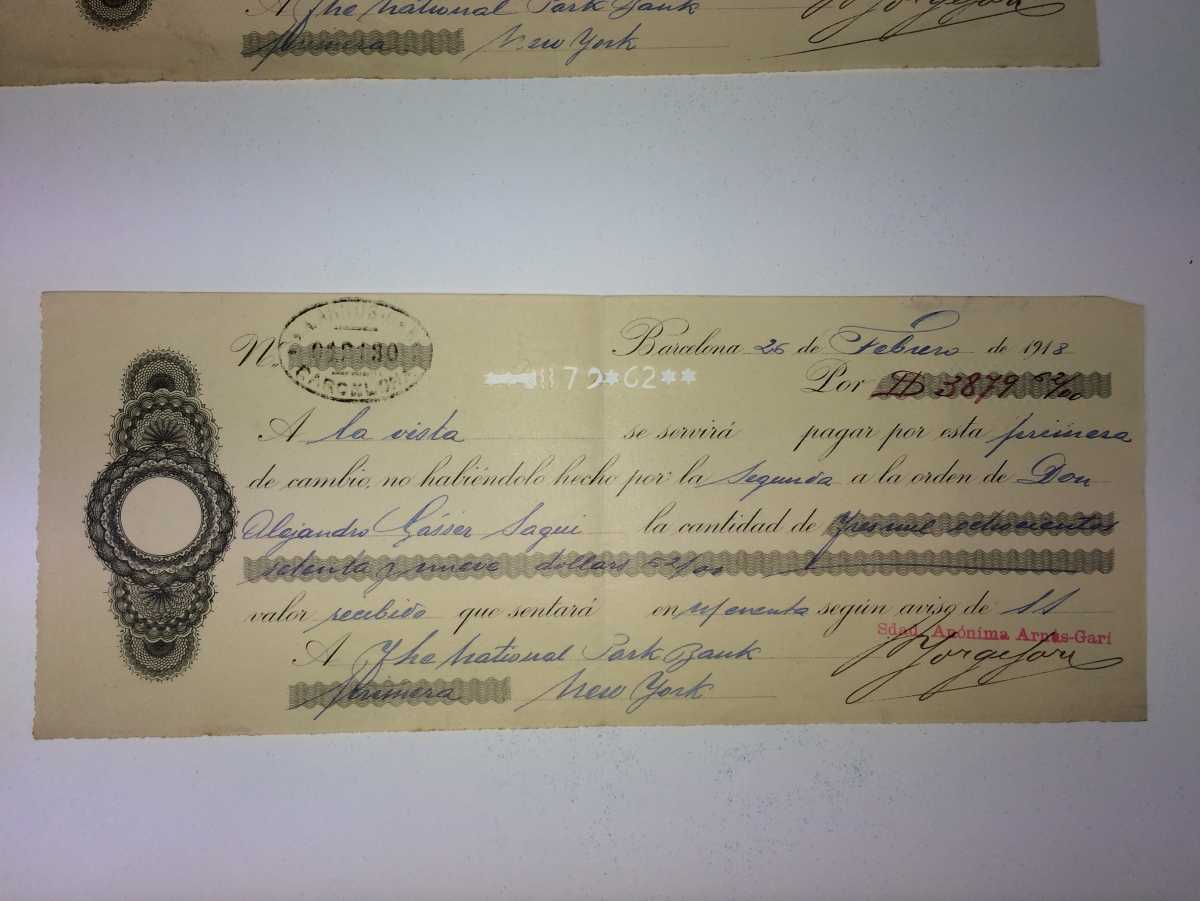 A The National Park Bank
Primera New York
Barcelona 26 de Febrero de 1918
Nº
BARCELONA
79*62**
Por $ 3879 62/00
A la vista se servirá pagar por esta primera
de cambio, no habiéndolo hecho por la segunda a la orden de Don
Alejandro Gasser Sagui la cantidad de tres mil ochocientos
setenta y nueve dollars 62/00
valor recibido que sentará en m/cuenta según aviso de SS
Sdad. Anónima Arnús-Garí
A The National Park Bank
Primera New York